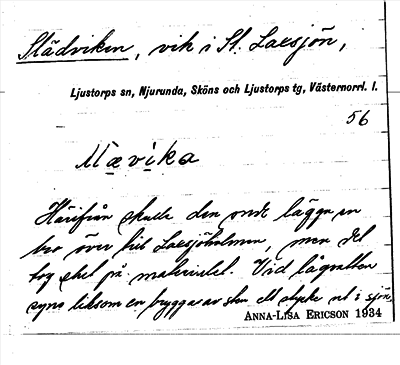 Slädviken, vik i St. Laxsjön,
Ljustorps sn, Njurunda, Sköns och Ljustorps tg, Västernorrl. l.
56
Härifrån skulle den onde lägga en
bro över till Laxsjöholmen, men det
tog slut på materialet. Vid lågvatten
syns liksom en brygga av sten ett stycke ut i sjön.
ANNA-LISA ERICSON 1934